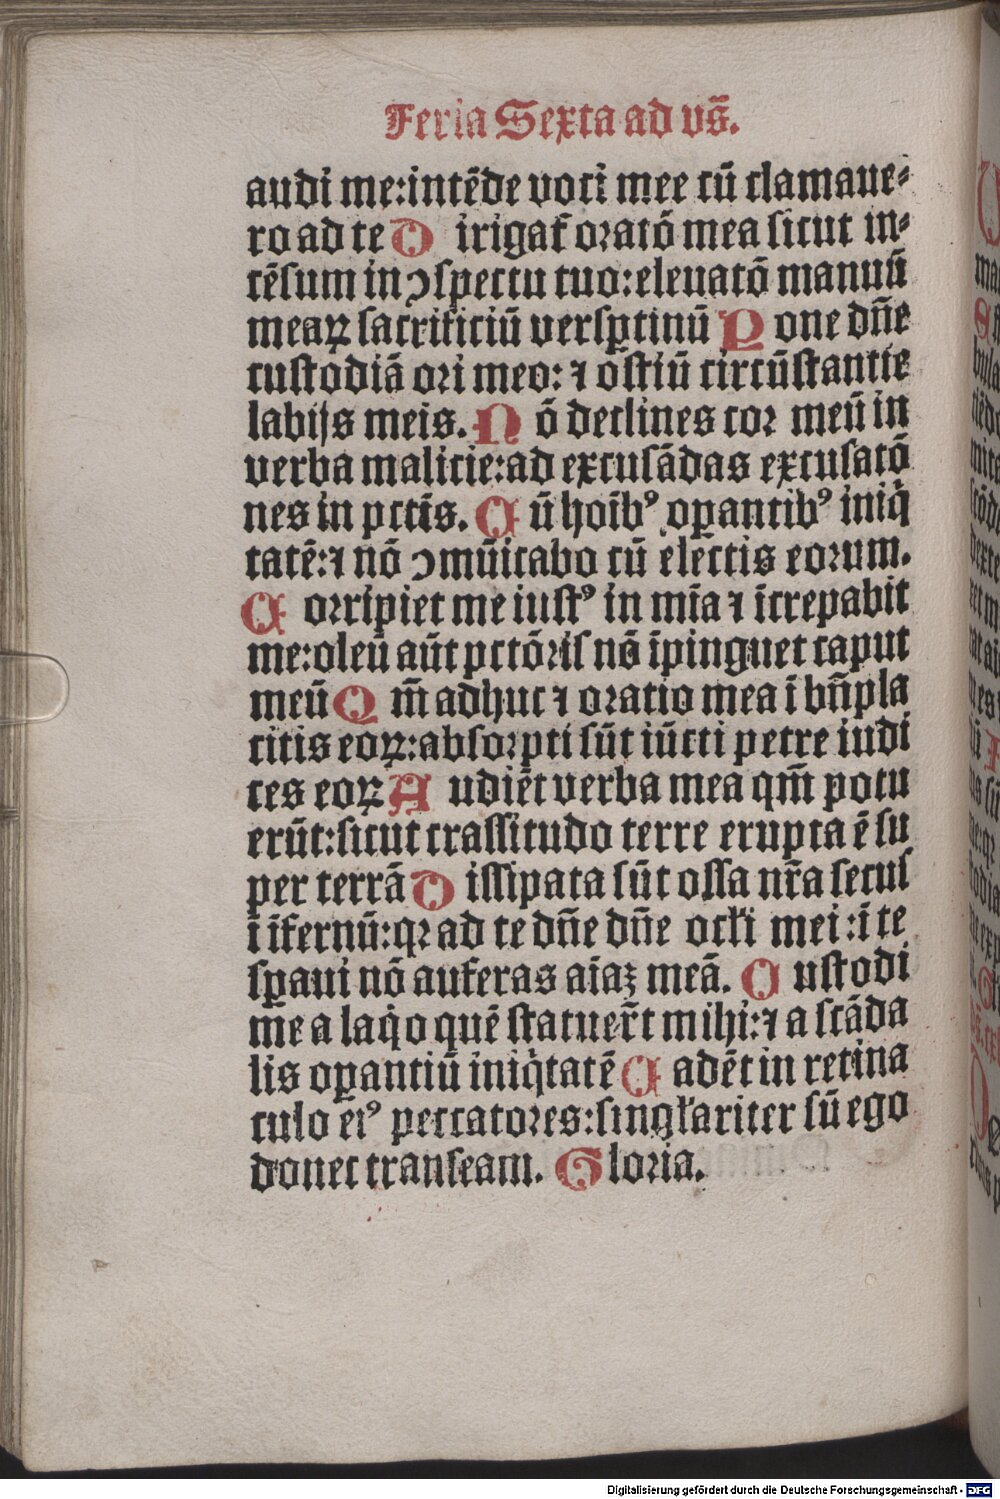 Feria Sexta ad vs̄.
audi me:intēde voci mee cū clamaue⸗
ro ad te D irigat᷑ oꝛatō mea sicut in⸗
cēsum in ↄspectu tuo:eleuatō manuū
meaꝝ sacrificiū verſꝑtinū P one dn̄e
custodiā ori meo: ⁊ ostiū circūstantie
labijs meis. N ō declines coꝛ meū in
verba malicie:ad excusādas excusatō
nes in pctīs. C ū hoīb⁹ oꝑantib⁹ iniq̇
tatē:⁊ nō ↄmūicabo cū electis eoꝛum.
C oꝛripiet me iust⁹ in mīa ⁊ īcrepabit
me:oleū aūt pctōris nō īpinguet caput
meū Q m̄ adhuc ⁊ oꝛatio mea ī bn̄pla
citis eoꝝ:absoꝛpti sūt iūcti petre iudi
ces eoꝝ A udiēt verba mea qm̄ potu
erūt:sicut crassitudo terre erupta ē su
per terrā D issipata sūt ossa nr̄a secus
ī īfernū:qꝛ ad te dn̄e dn̄e ocłi mei:ī te
sꝑaui nō auferas aīaꝫ meā. C ustodi
me a laq̇o quē statuer̄t mihi:⁊ a scāda
lis oꝑantiū iniq̇tatē C adēt in retina
culo ei⁹ peccatoꝛes:singłariter sū ego
donec transeam. G loꝛia.
Digitalisierung gefördert durch die Deutsche Forschungsgemeinschaft - DFG